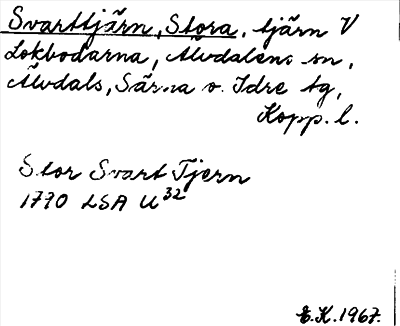 Svarttjärn, Stora, tjärn V
Lokbodarna, Älvdalens sn,
Älvdals, Särna o. Idre tg,
Kopp. l.
Stor Svart Tjern
1790 LSA U 32
E.K. 1967.